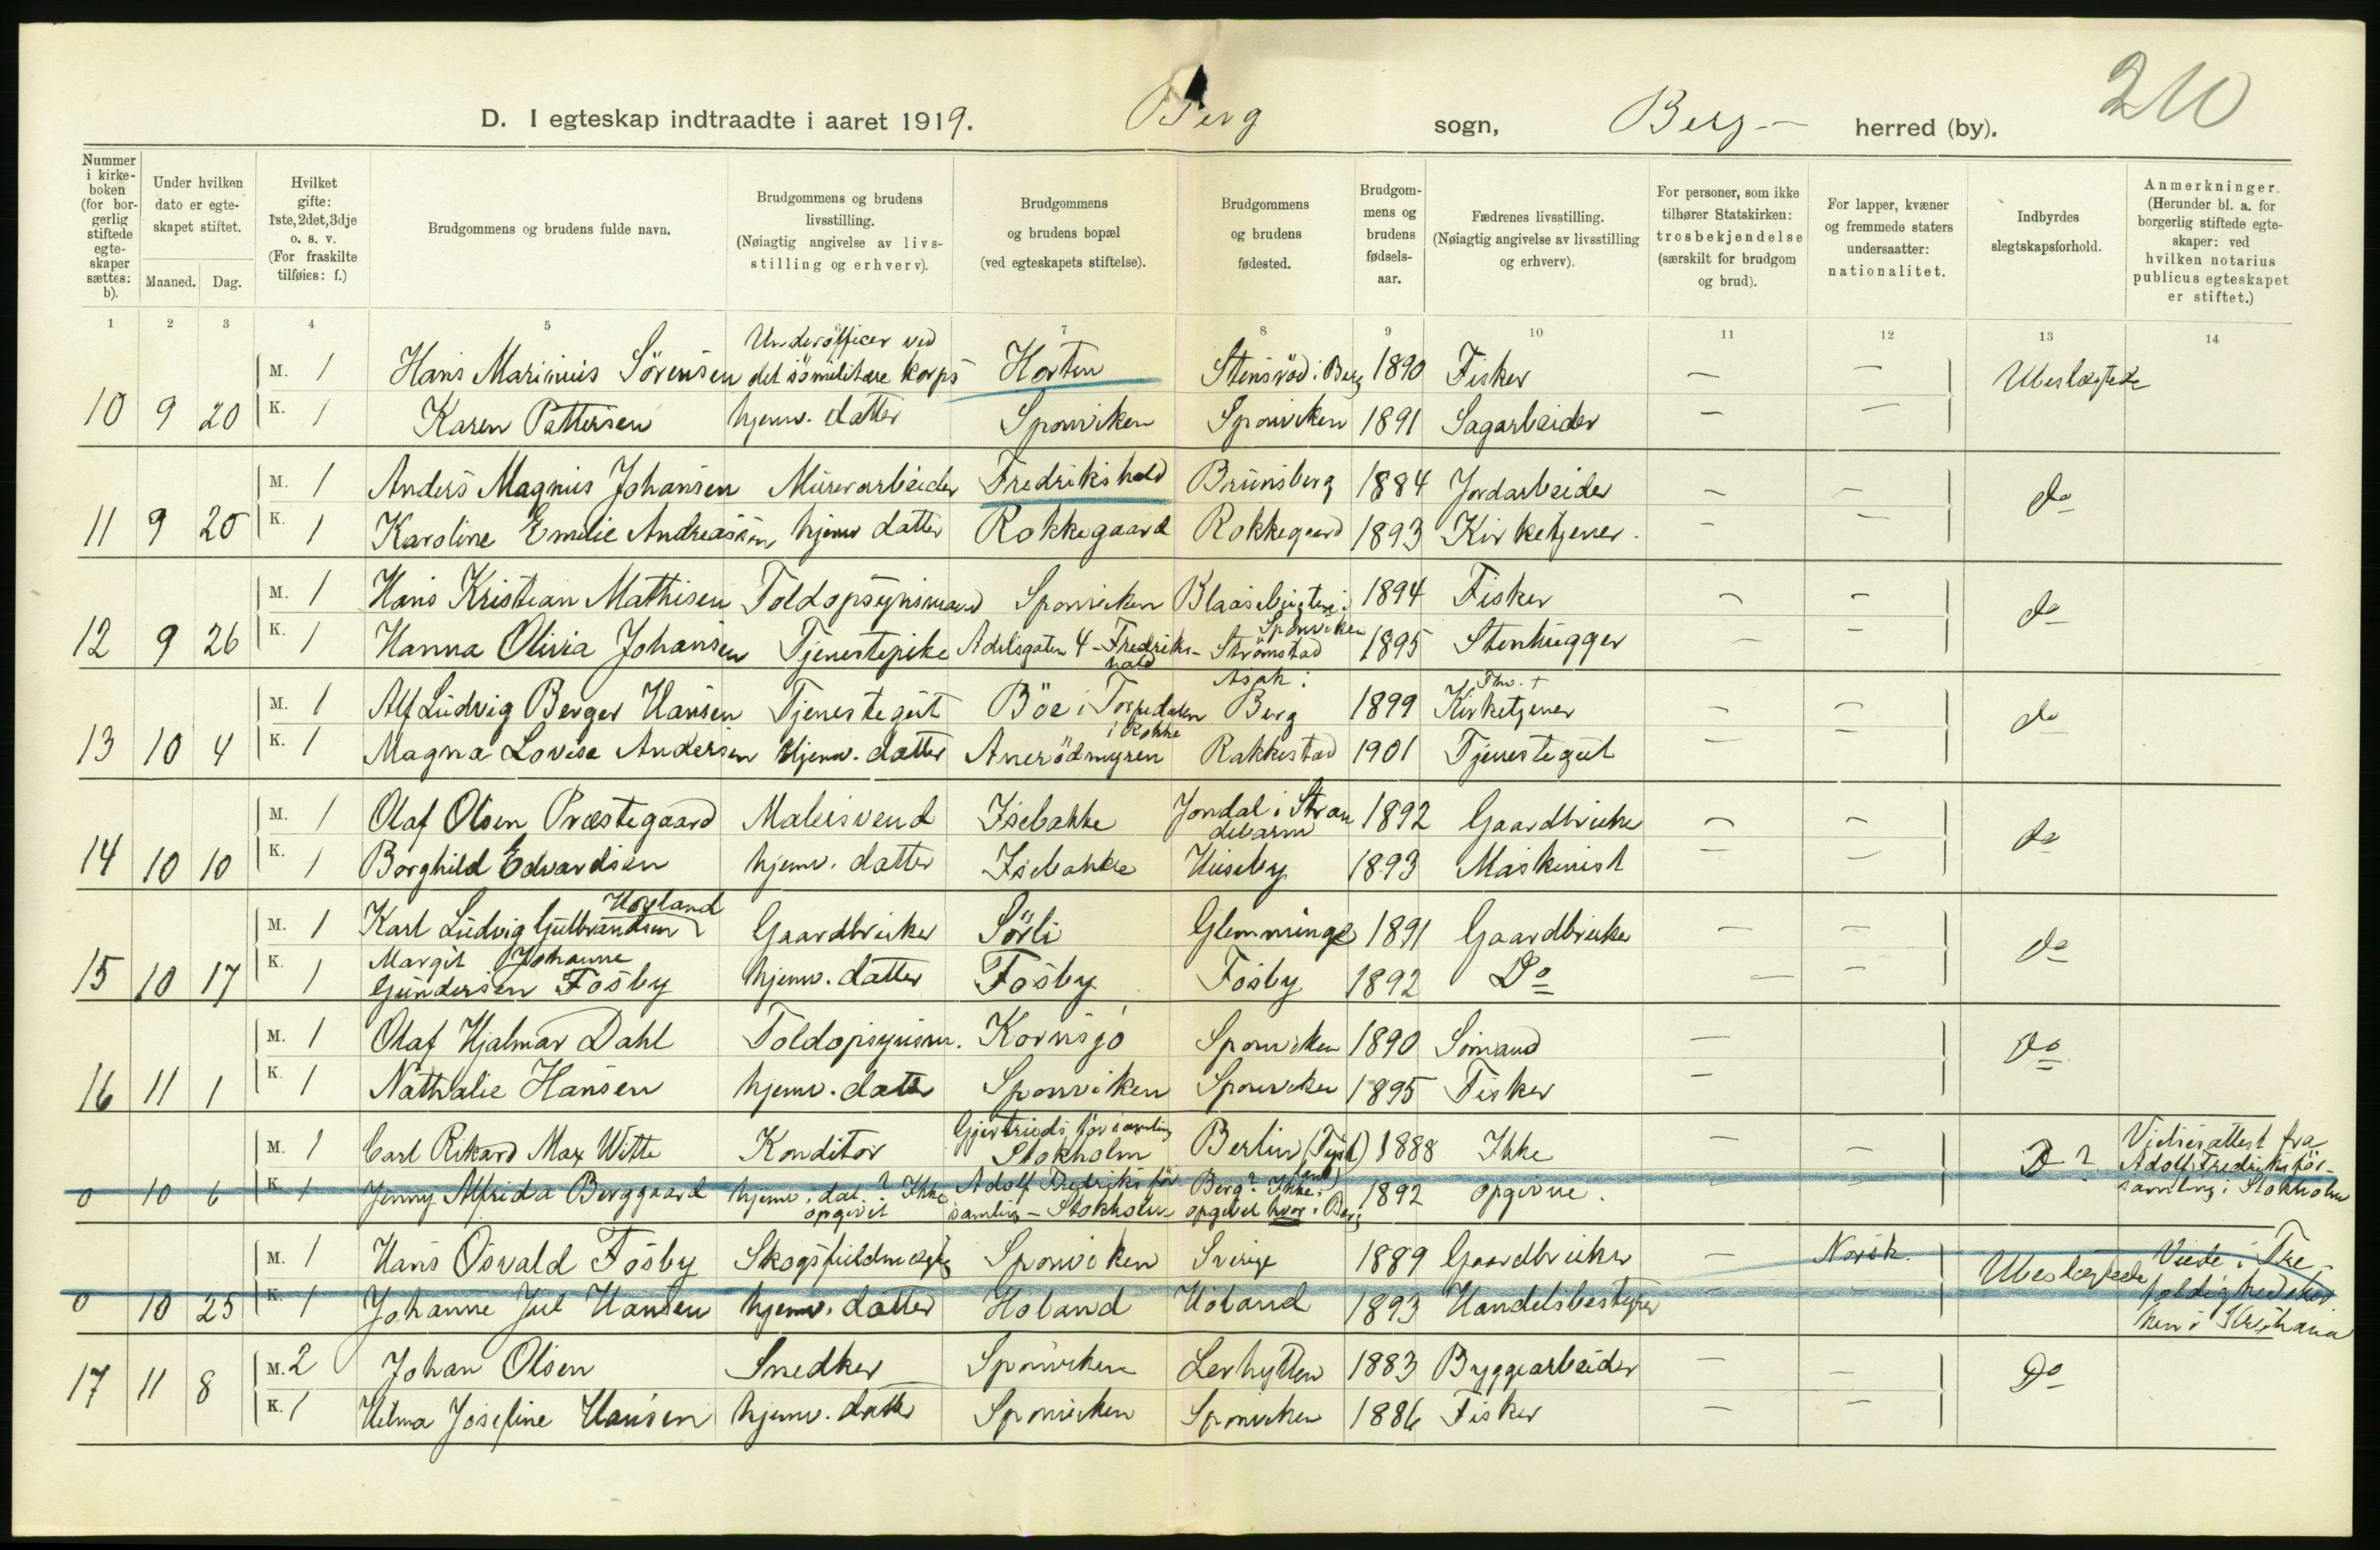 210
D. I egteskap indtraadte i aaret 1919. Berg sogn, Berg herred (by).
Nummer i kirkeboken (for borgerlig stiftede egteskaper sættes: b).
Under hvilken dato er egteskapet stiftet.
Maaned. Dag.
Hvilket gifte: 1ste, 2det, 3dje o. s. v. (For fraskilte tilføies: f.)
Brudgommens og brudens fulde navn.
Brudgommens og brudens livsstilling. (Nøiagtig angivelse av livsstilling og erhverv).
Brudgommens og brudens bopæl (ved egteskapets stiftelse).
Brudgommens og brudens fødested.
Brudgommens og brudens fødselsaar.
Fædrenes livsstilling. (Nøiagtig angivelse av livsstilling og erhverv).
For personer, som ikke tilhører Statskirken: trosbekjendelse (særskilt for brudgom og brud).
For lapper, kvæner og fremmede staters undersaatter: nationalitet.
Indbyrdes slegtskapsforhold.
Anmerkninger. (Herunder bl. a. for borgerlig stiftede egteskaper: ved hvilken notarius publicus egteskapet er stiftet.)
1 2 3 4 5 7 8 9 10 11 12 13 14
M. 1 Hans Marinius Sörensen Underofficer ved det sömilitære korps Horten Stensröd i Berg 1890 Fisker — — Ubeslægtede
10 9 20 K. 1 Karen Pettersen hjemv. datter Sponviken Sponviken 1891 Sagarbeider — —
M. 1 Anders Magnus Johansen Murerarbeider Fredrikshald Brunsberg 1884 Jordarbeider — — do
11 9 20 K. 1 Karoline Emilie Andreassen hjemv datter Rokkegaard Rokkegaard 1893 Kirketjener. — —
M. 1 Hans Kristian Mathisen Toldopsynsmand Sponviken Blaasebugten i Sponviken 1894 Fisker — — do
12 9 26 K. 1 Hanna Olivia Johansen Tjenestepike Adelsgaten 4 - Fredrikshald Strömstad 1895 Stenhugger — —
M. 1 Alf Ludvig Berger Hansen Tjenestegut Böe i Torpedalen i Rokke Asak i Berg 1899 Fhv. + Kirketjener — — do
13 10 4 K. 1 Magna Lovise Andersen Hjemv. datter Anerödmyren Rakkestad 1901 Tjenestegut — —
M. 1 Olaf Olsen Præstegaard Malersvend Isebakke Jondal i Strandebarm 1892 Gaardbruker — — do
14 10 10 K. 1 Borghild Edvardsen hjemv. datter Isebakke Huseby 1893 Maskinist — —
M. 1 Karl Ludvig Gulbrandsen Hogland Gaardbruker Sörli Glemminge 1891 Gaardbruker — — do
15 10 17 K. 1 Margit Johanne Gundersen Fosby hjemv. datter Fosby Fosby 1892 Do — —
M. 1 Olaf Hjalmar Dahl Toldopsynsm. Kornsjö Sponviken 1890 Sömand — Do
16 11 1 K. 1 Nathalie Hansen hjemv. datter Sponviken Sponviken 1895 Fisker —
M. 1 Carl Rikard Max Witte Konditor Gjertruds församling Stokholm Berlin (Tyskland) 1888 Ikke — — D ? Vielsesattest fra Adolf Fredriks församling i Stokholm
0 10 6 K. 1 Jenny Alfrida Berggaard hjemv. dat. ? Ikke opgivet Adolf Fredriks församling - Stokholm Berg? Ikke opgivet hvor i Berg 1892 opgivne. — —
M. 1 Hans Osvald Fosby Skogsfuldmægtig Sponviken Sverige 1889 Gaardbruker — Norsk. Ubeslægtede Viede i Trefoldighedskirken i Kristiania
0 10 25 K. 1 Johanne Jul Hansen hjemv. datter Höland Höland 1893 Handelsbestyrer —
M. 2 Johan Olsen Snedker Sponviken Lerhytten 1883 Bryggearbeider — — Do
17 11 8 K. 1 Hilma Josefine Hansen hjemv. datter Sponviken Sponviken 1886 Fisker — —